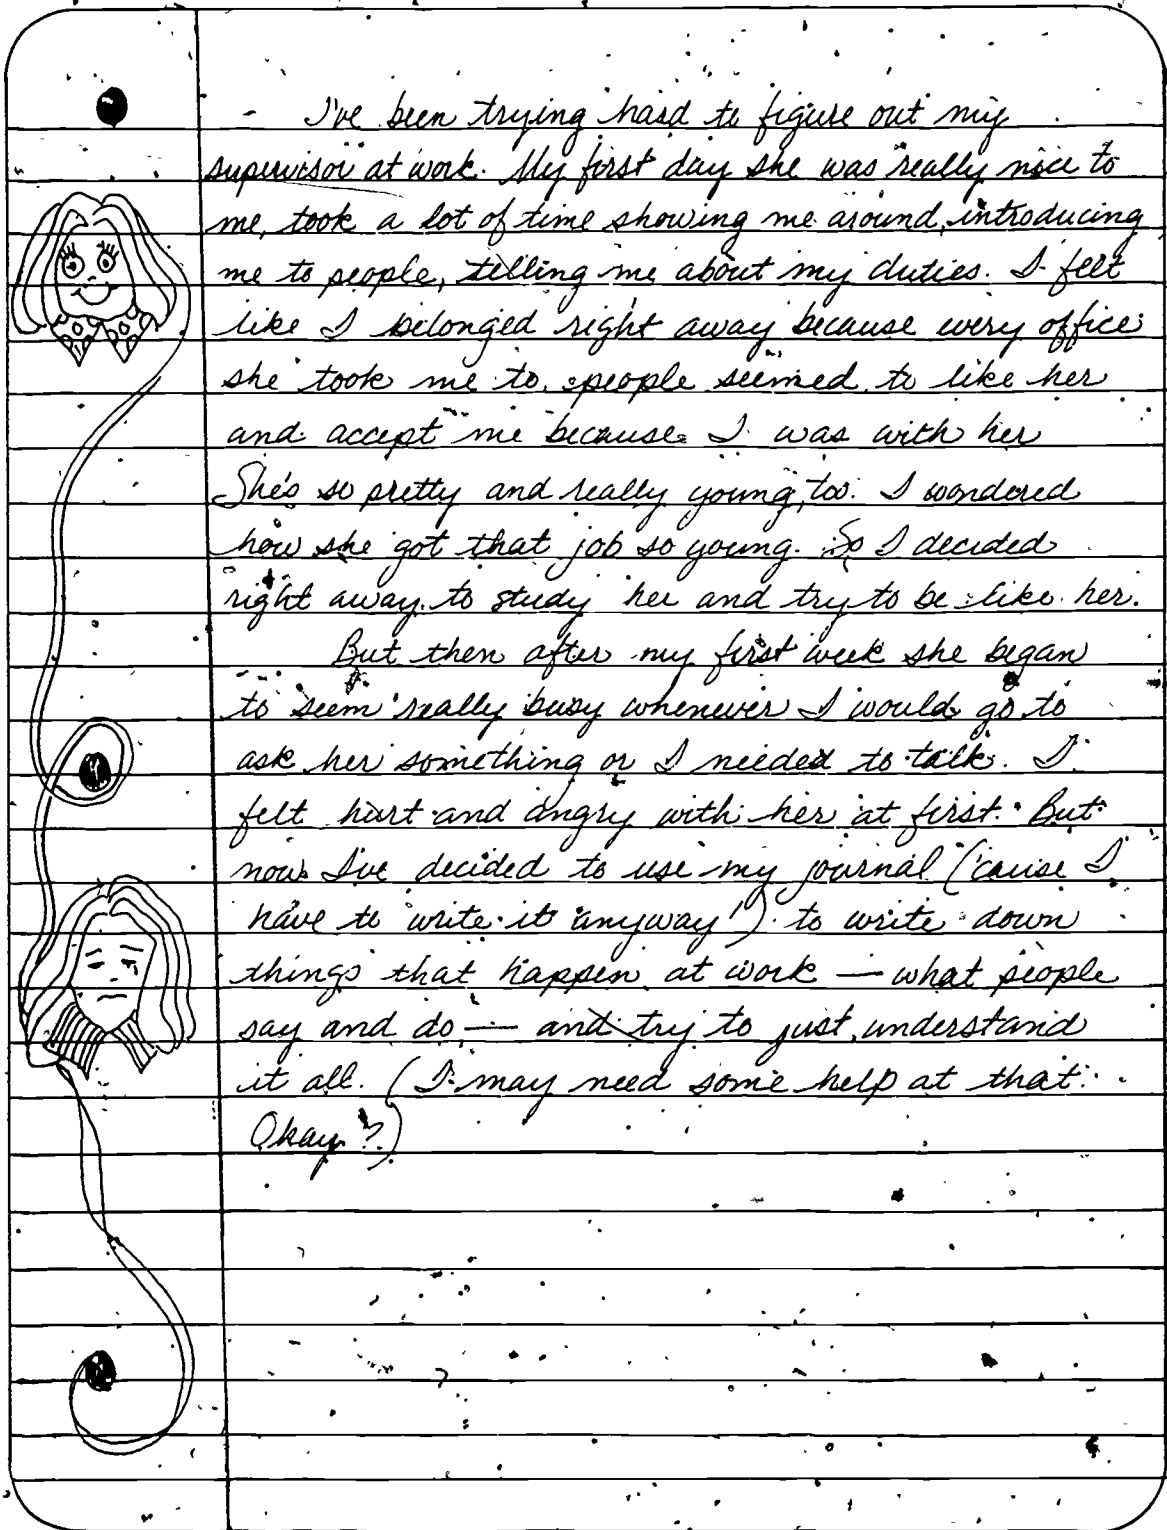 I've been trying hard to figure out my
supervisor at work. My first day she was really nice to
me, took a lot of time showing me around, introducing
me to people, telling me about my duties. I felt
like I belonged right away because every office
she took me to, people seemed to like her
and accept me because I was with her
She's so pretty and really young, too. I wondered
how she got that job so young. So I decided
right away to study her and try to be like her.
But then after my first week she began
to seem really busy whenever I would go to
ask her something or I needed to talk. I
felt hurt and angry with her at first. But
now I've decided to use my journal ('cause I
have to write it anyway!) to write down
things that happen at work — what people
say and do — and try to just understand
it all. (I may need some help at that.
Okay?)